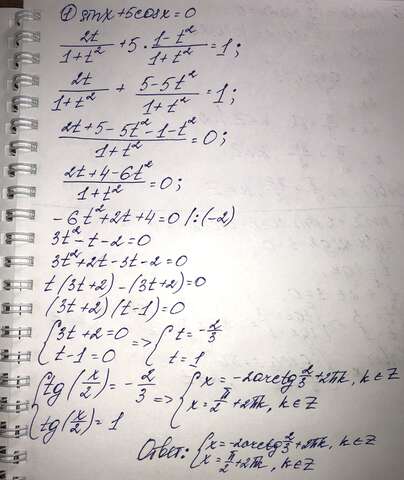 ① sinx+5cosx=0
2t/(1+t²) + 5 · (1-t²)/(1+t²) = 1;
2t/(1+t²) + (5-5t²)/(1+t²) = 1;
(2t+5-5t²-1-t²)/(1+t²) = 0;
(2t+4-6t²)/(1+t²) = 0;
-6t²+2t+4=0 |:(-2)
3t²-t-2=0
3t²+2t-3t-2=0
t(3t+2)-(3t+2)=0
(3t+2)(t-1)=0
{3t+2=0 => {t=-2/3
t-1=0 t=1
{tg(x/2)=-2/3 => {x=-2arctg 2/3+2πk, k∈Z
tg(x/2)=1 x=π/2+2πk, k∈Z
Ответ: {x=-2arctg 2/3+2πk, k∈Z
x=π/2+2πk, k∈Z